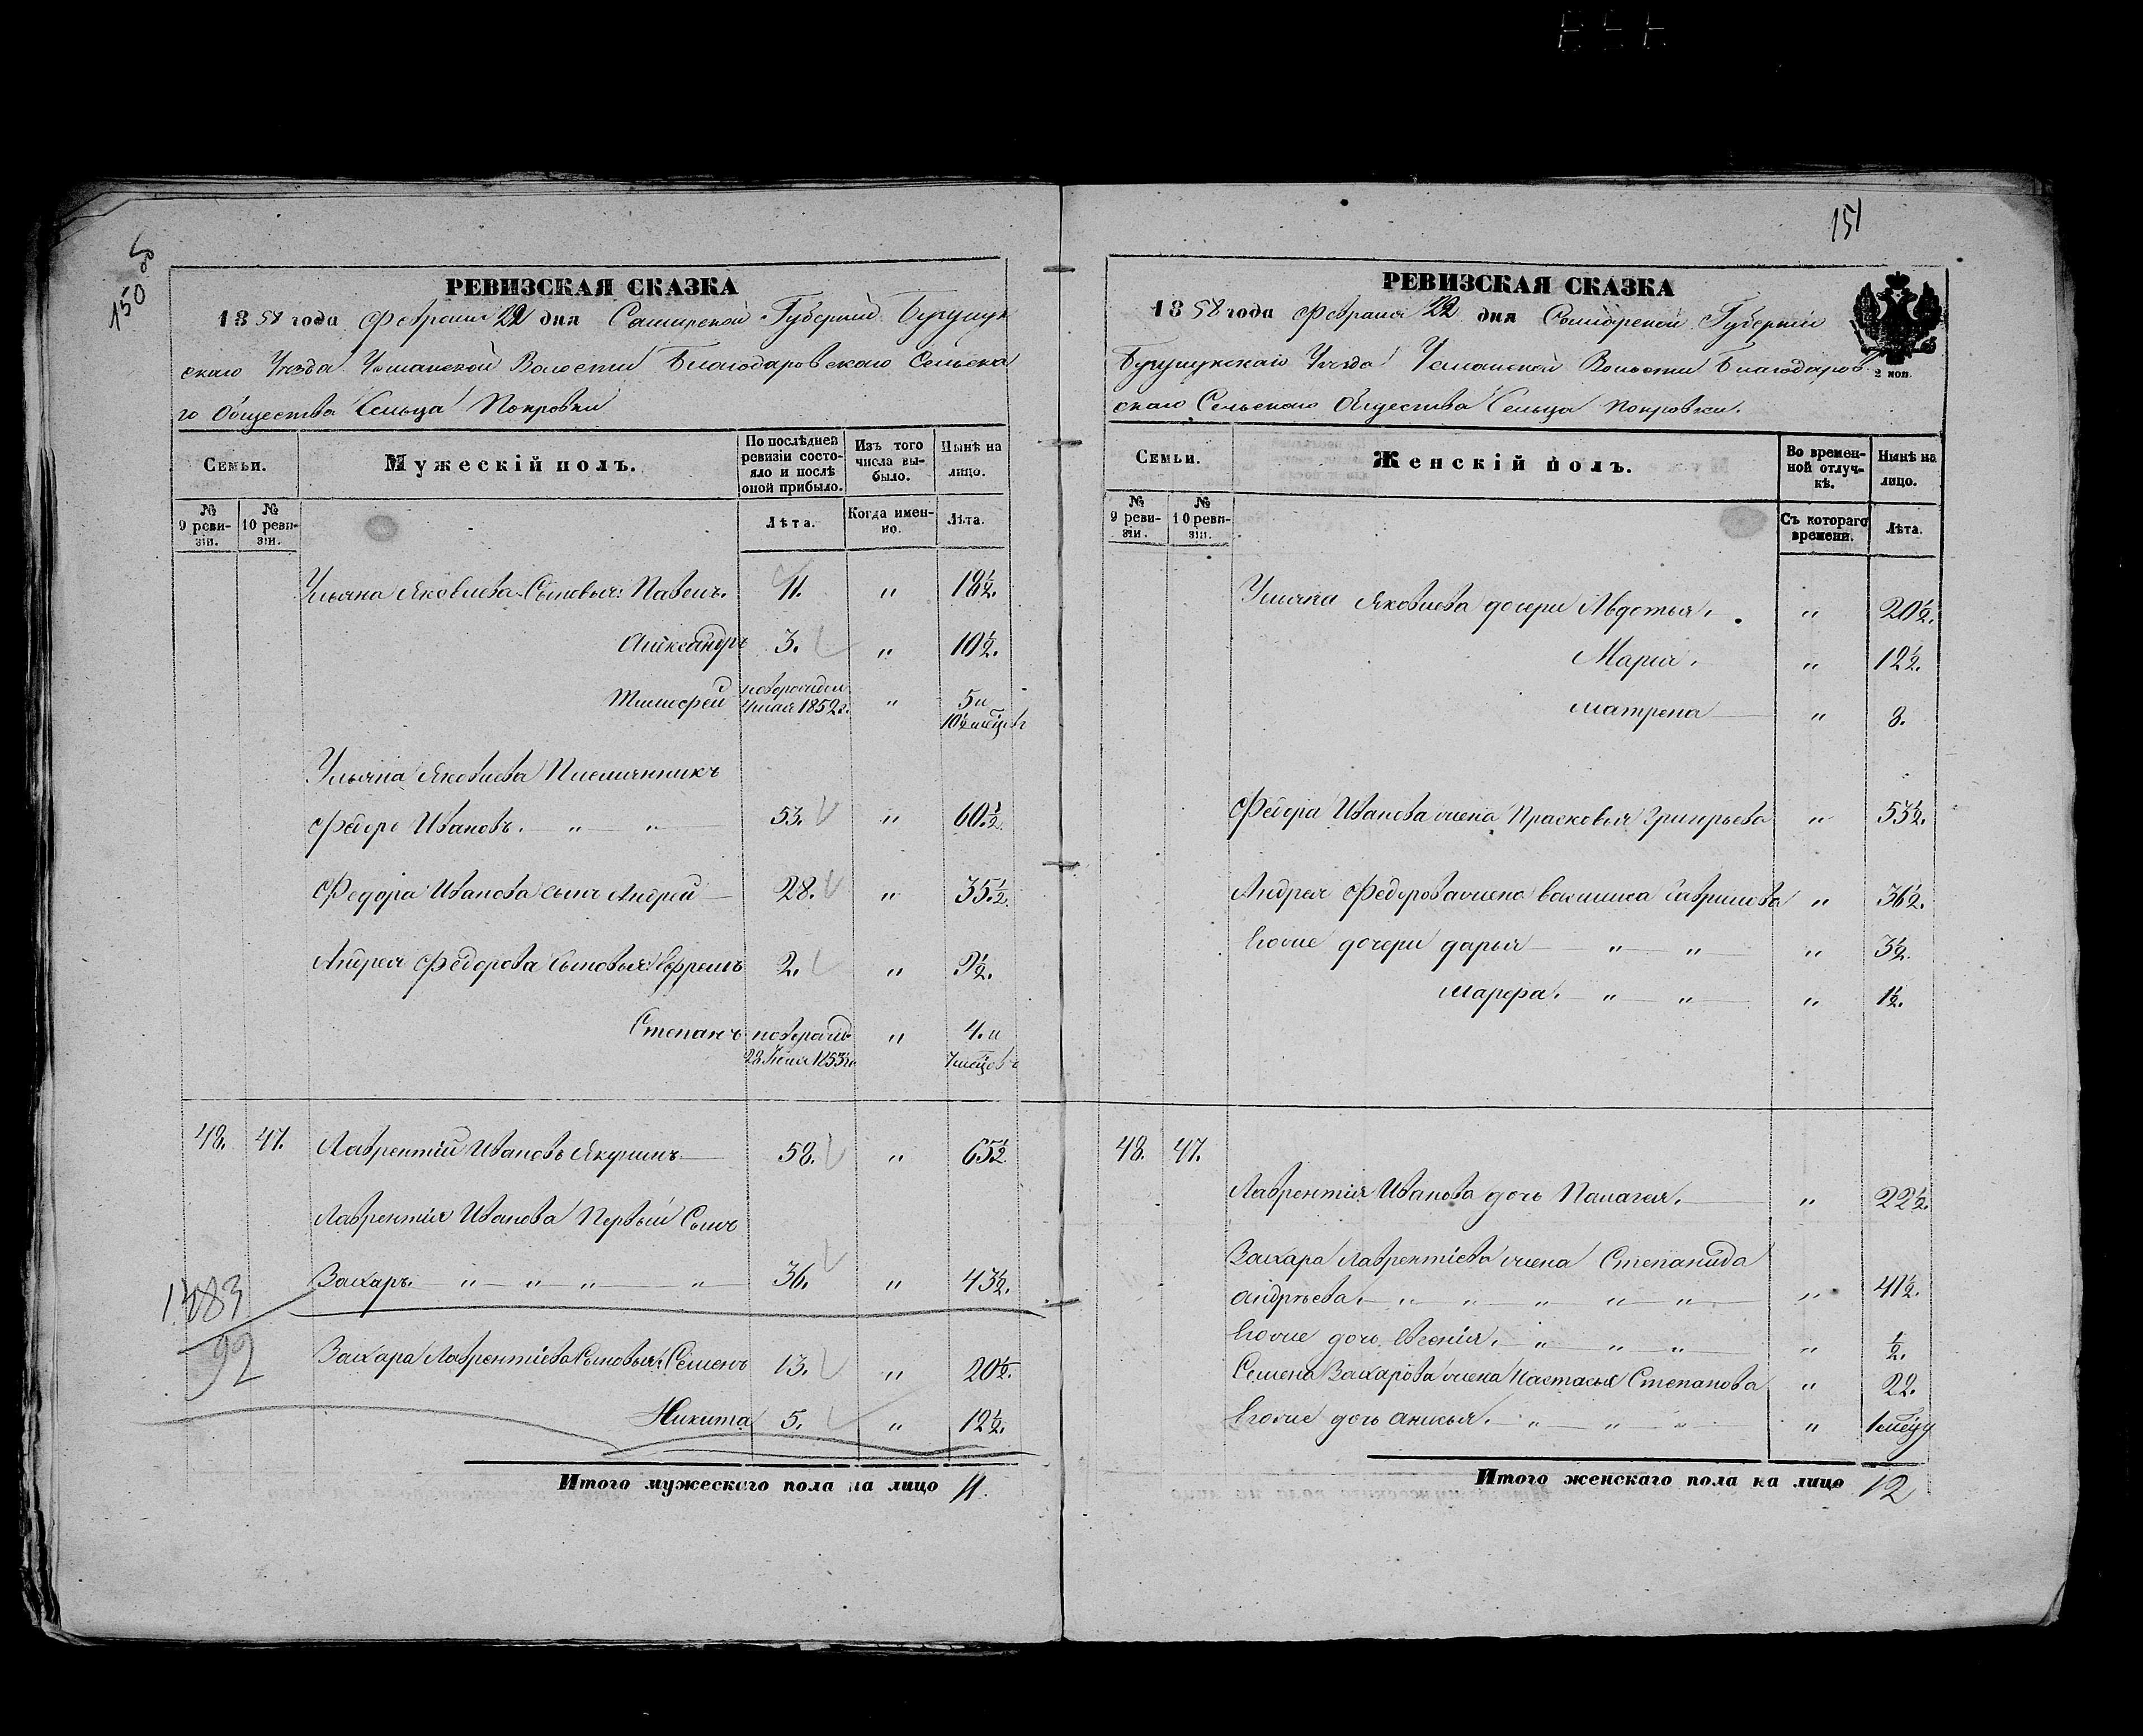 150 об
РЕВИЗСКАЯ СКАЗКА
1858 года Февраля 22 дня Самарской Губерніи Бузулук
скаго Уѣзда Усманской Волости Благодаровскаго Сельска
го Общества Сельца Покровки
Семьи.
Мужескій полъ.
По послѣдней ревизіи состояло и послѣ оной прибыло.
Изъ того числа выбыло.
Нынѣ на лицо.
№ 9 ревизіи.
№ 10 ревизіи.
Лѣта.
Когда именно.
Лѣта.
Ульяна Яковлева Сыновья: Павелъ. 11. " 18½.
Александръ 3. " 10½.
Тимофей новорожден " 5 и
4 мая 1852 г. 10½ месцовъ
Ульяна Яковлева Племянникъ
Федоръ Ивановъ. " " 53. " 60.½.
Федора Иванова сынъ Андрей 28. " 35.½.
Андрея Федорова Сыновья: Ефремъ 2. " 9½.
Степанъ новорожд " 4. и
1853 го 7 месцовъ
48. 47. Лаврентій Ивановъ Якунинъ 58. " 65½
Лаврентія Иванова Первый Сынъ
Захаръ. " " " " 36. " 43½.
Захара Лаврентіева Сыновья: Семенъ 13. " 20½.
92
Никита 5. " 12½.
Итого мужескаго пола на лицо 11.
151
РЕВИЗСКАЯ СКАЗКА
1858 года Февраля 22 дня Самарской Губерніи
Бузулукскаго Уѣзда Усманской Волости Благодаров
2 коп.
скаго Сельскаго Общества Сельца Покровки.
Семьи.
Женскій полъ.
Во временной отлучкѣ.
Нынѣ на лицо.
№ 9 ревизіи.
№ 10 ревизіи.
Съ котораго времени.
Лѣта.
Ульяна Яковлева дочери Авдотья. " 20½.
Марья. " 12½.
Матрена " 8.
Федора Иванова жена Прасковья Григорьева " 53½.
Андрея Федорова жена Гаврилова " 36½.
Егоже дочери Дарья " " " 3½.
Марфа. " " " 1½.
48. 47.
Лаврентія Иванова дочь Палагея. " 22½.
Захара Лаврентіева жена Степанида
Андрѣева. " " " " " " 41½.
Егоже дочь Евгенія. " " " " ½.
Семена Захарова жена Настасья Степанова " 22.
Егоже дочь Анисья. " " " " 1 месцу
Итого женскаго пола на лицо 12